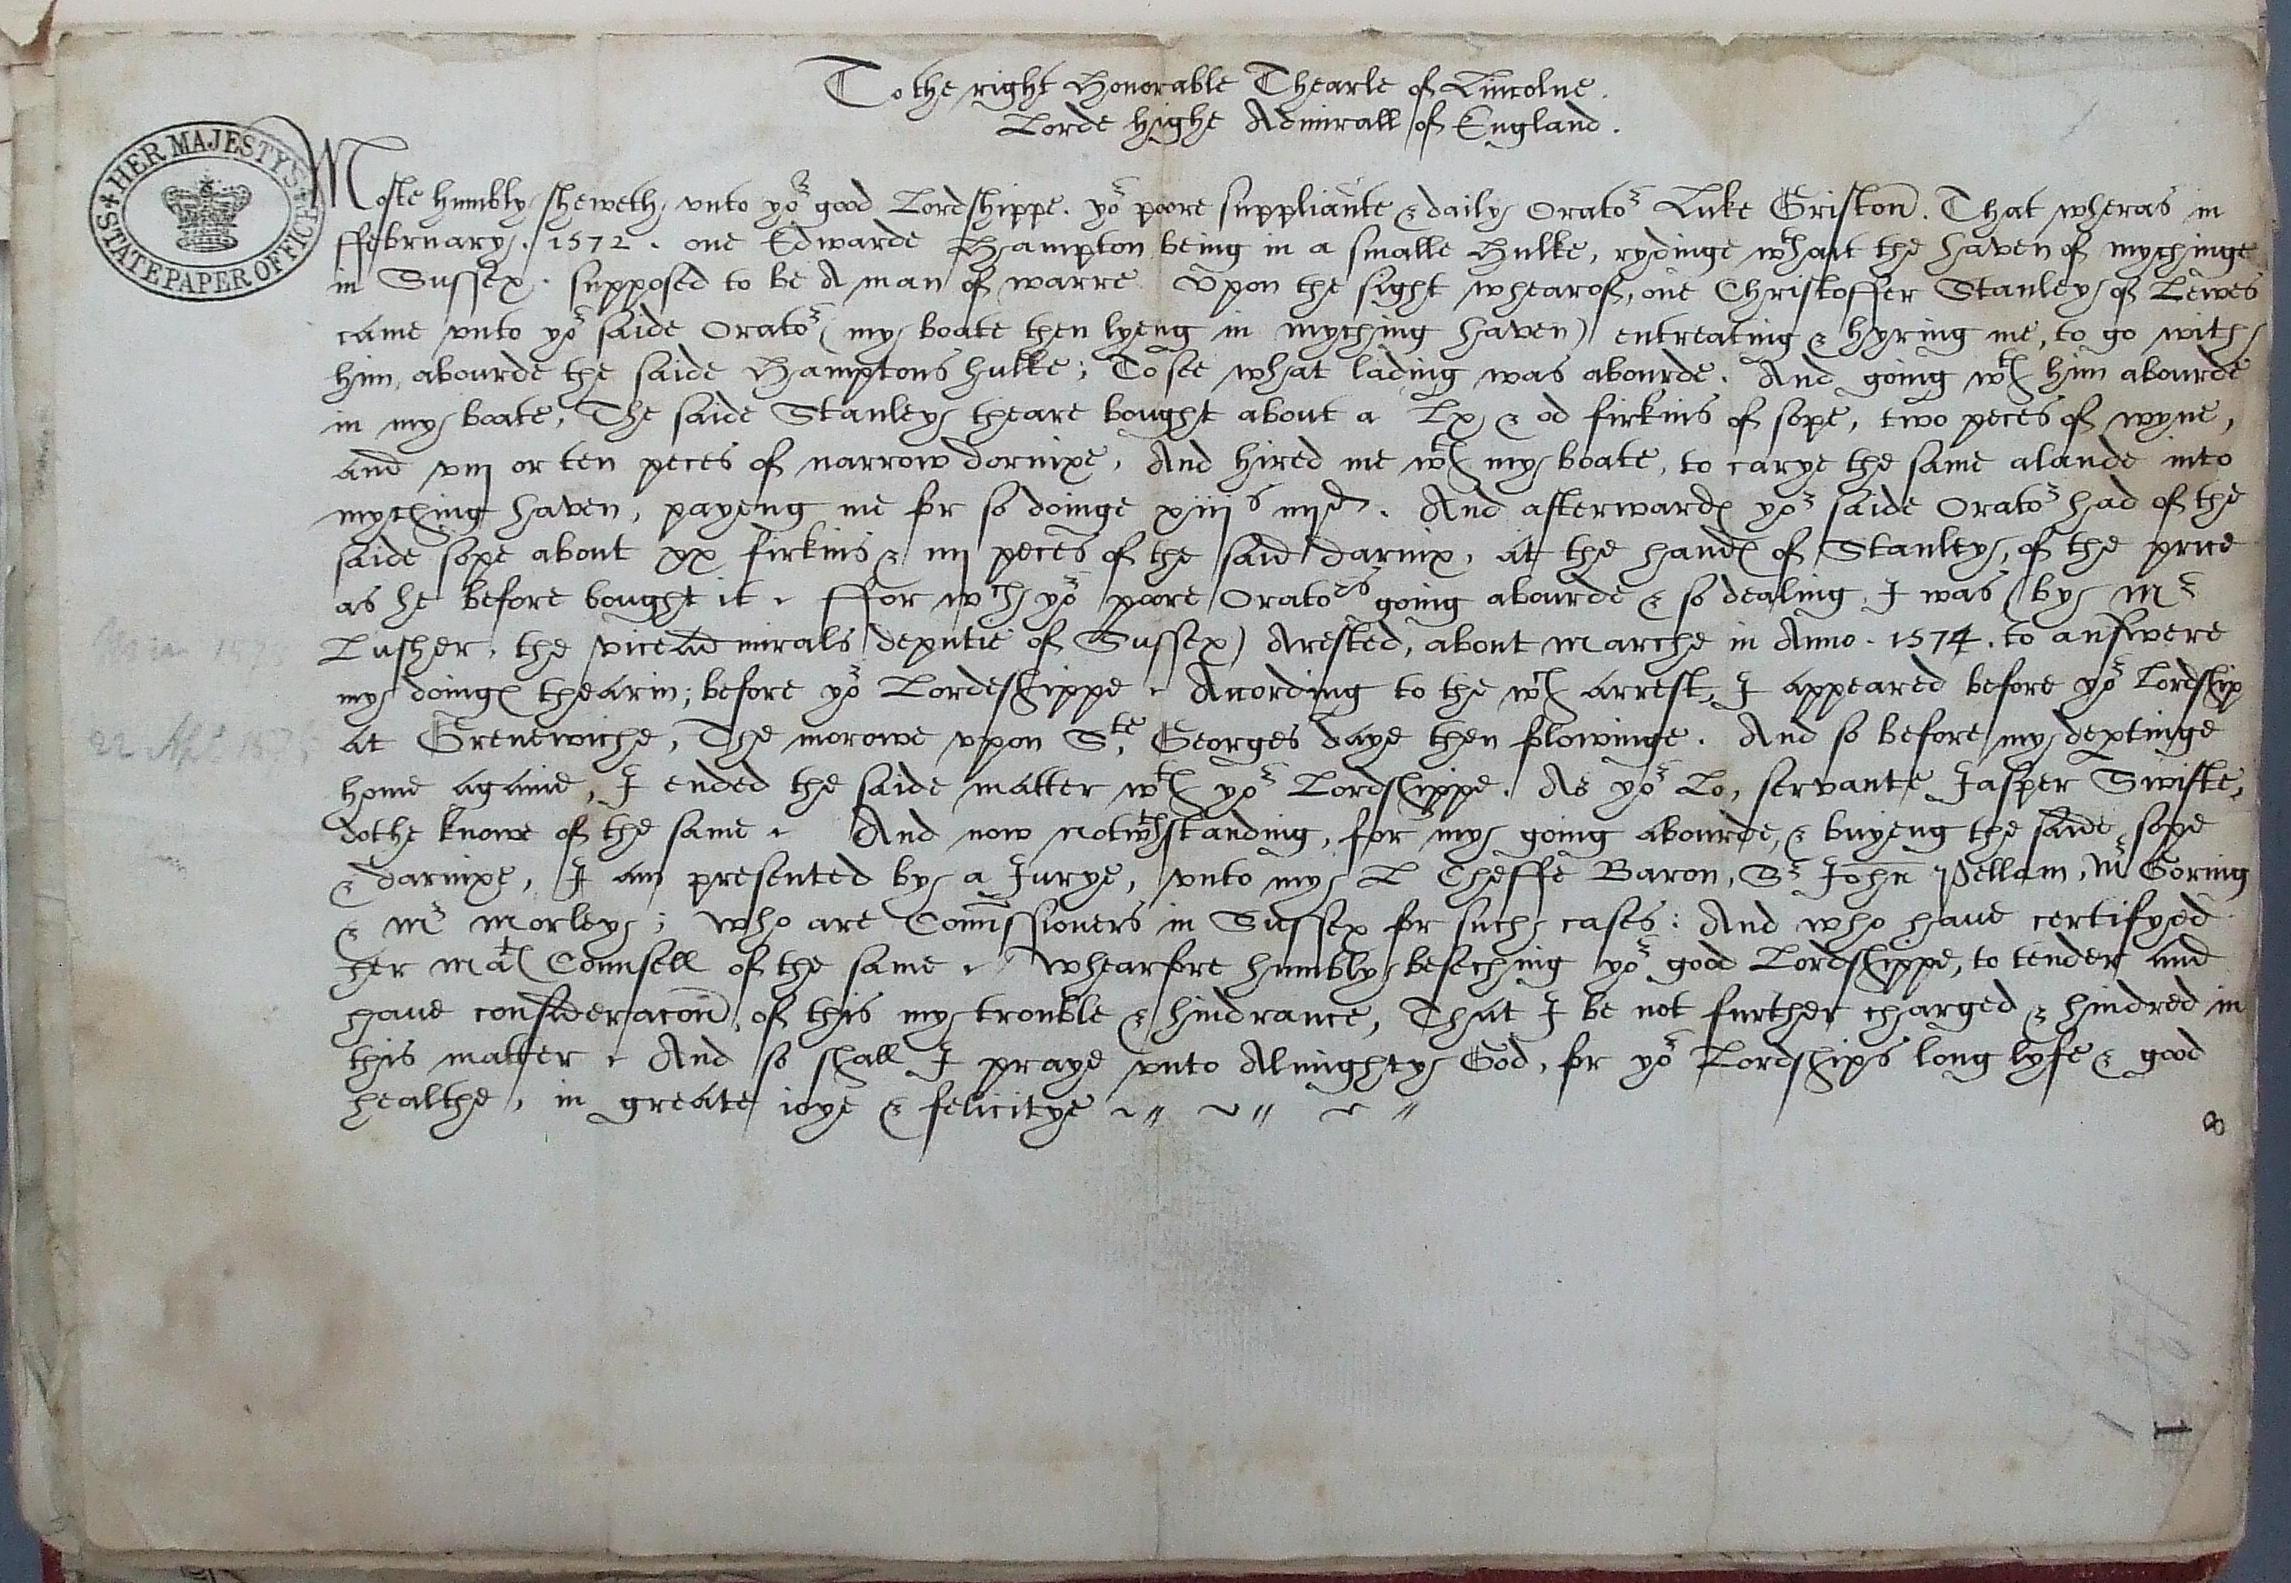 To the right Honorable Thearle of Lincolne.
Lorde highe Admirall of England.
HER MAJESTY'S
STATE PAPER OFFICE
Moste humbly sheweth vnto yor good Lordshippe. yor poore suppliante & daily Orator Luke Griston. That wheras in
ffebruary. 1572. one Edwarde Hampton being in a smalle Hulke, rydinge wthout the haven of mychinge
in Sussex. supposed to be A man of warre Vpon the sight whearof, one Christoffer Stanley of Lewes
came vnto yor saide Orator (my boate then lyeng in myching haven) entreating & hyring me, to go with
him, abourde the saide Hamptons hulke; To see what lading was abourde. And going wth him abourde
in my boate, The saide Stanley theare bought about a lx & od firkins of sope, two peces of wyne,
and viij or ten peces of narrow dornixe, And hired me wth my boate, to carye the same alande into
myching haven, payeng me for so doinge xiijs iiijd. And afterwardes yor saide Orator had of the
saide sope about xx firkins & iiij peces of the said darnix, at the handes of Stanley, of the price
as he before bought it. ffor wch yor poore Orators going abourde & so dealing, I was (by Mr
Lusher, the viceadmirals deputie of Sussex) Arested, about Marche in Anno. 1574. to answere
my doinges thearin; before yor Lordeshippe. According to the wch arrest, I appeared before yor Lordship
22 Apr 157
at Grenewiche, The morowe vpon Ste, Georges daye then folowinge. And so before my deptinge
home againe, I ended the saide matter wth yor Lordshippe. As yor Lo, servante Jasper Swifte,
dothe knowe of the same. And now notwthstanding, for my going abourde, & buyeng the saide sope
& darnixe, I am presented by a Jurye, vnto my L Cheffe Baron, Sr John Pellam, Mr Goring
& Mr Morley; who are Comissioners in Sussex for such cases: And who haue certifyed
her Mates Counsell of the same. Whearfore humbly beseching yor good Lordshippe, to tender and
haue consideracon, of this my trouble & hindrance, That I be not further charged & hindred in
this matter. And so shall I praye vnto Almighty God, for yor Lordships long lyfe & good
healthe, in greate ioye & felicitye
1